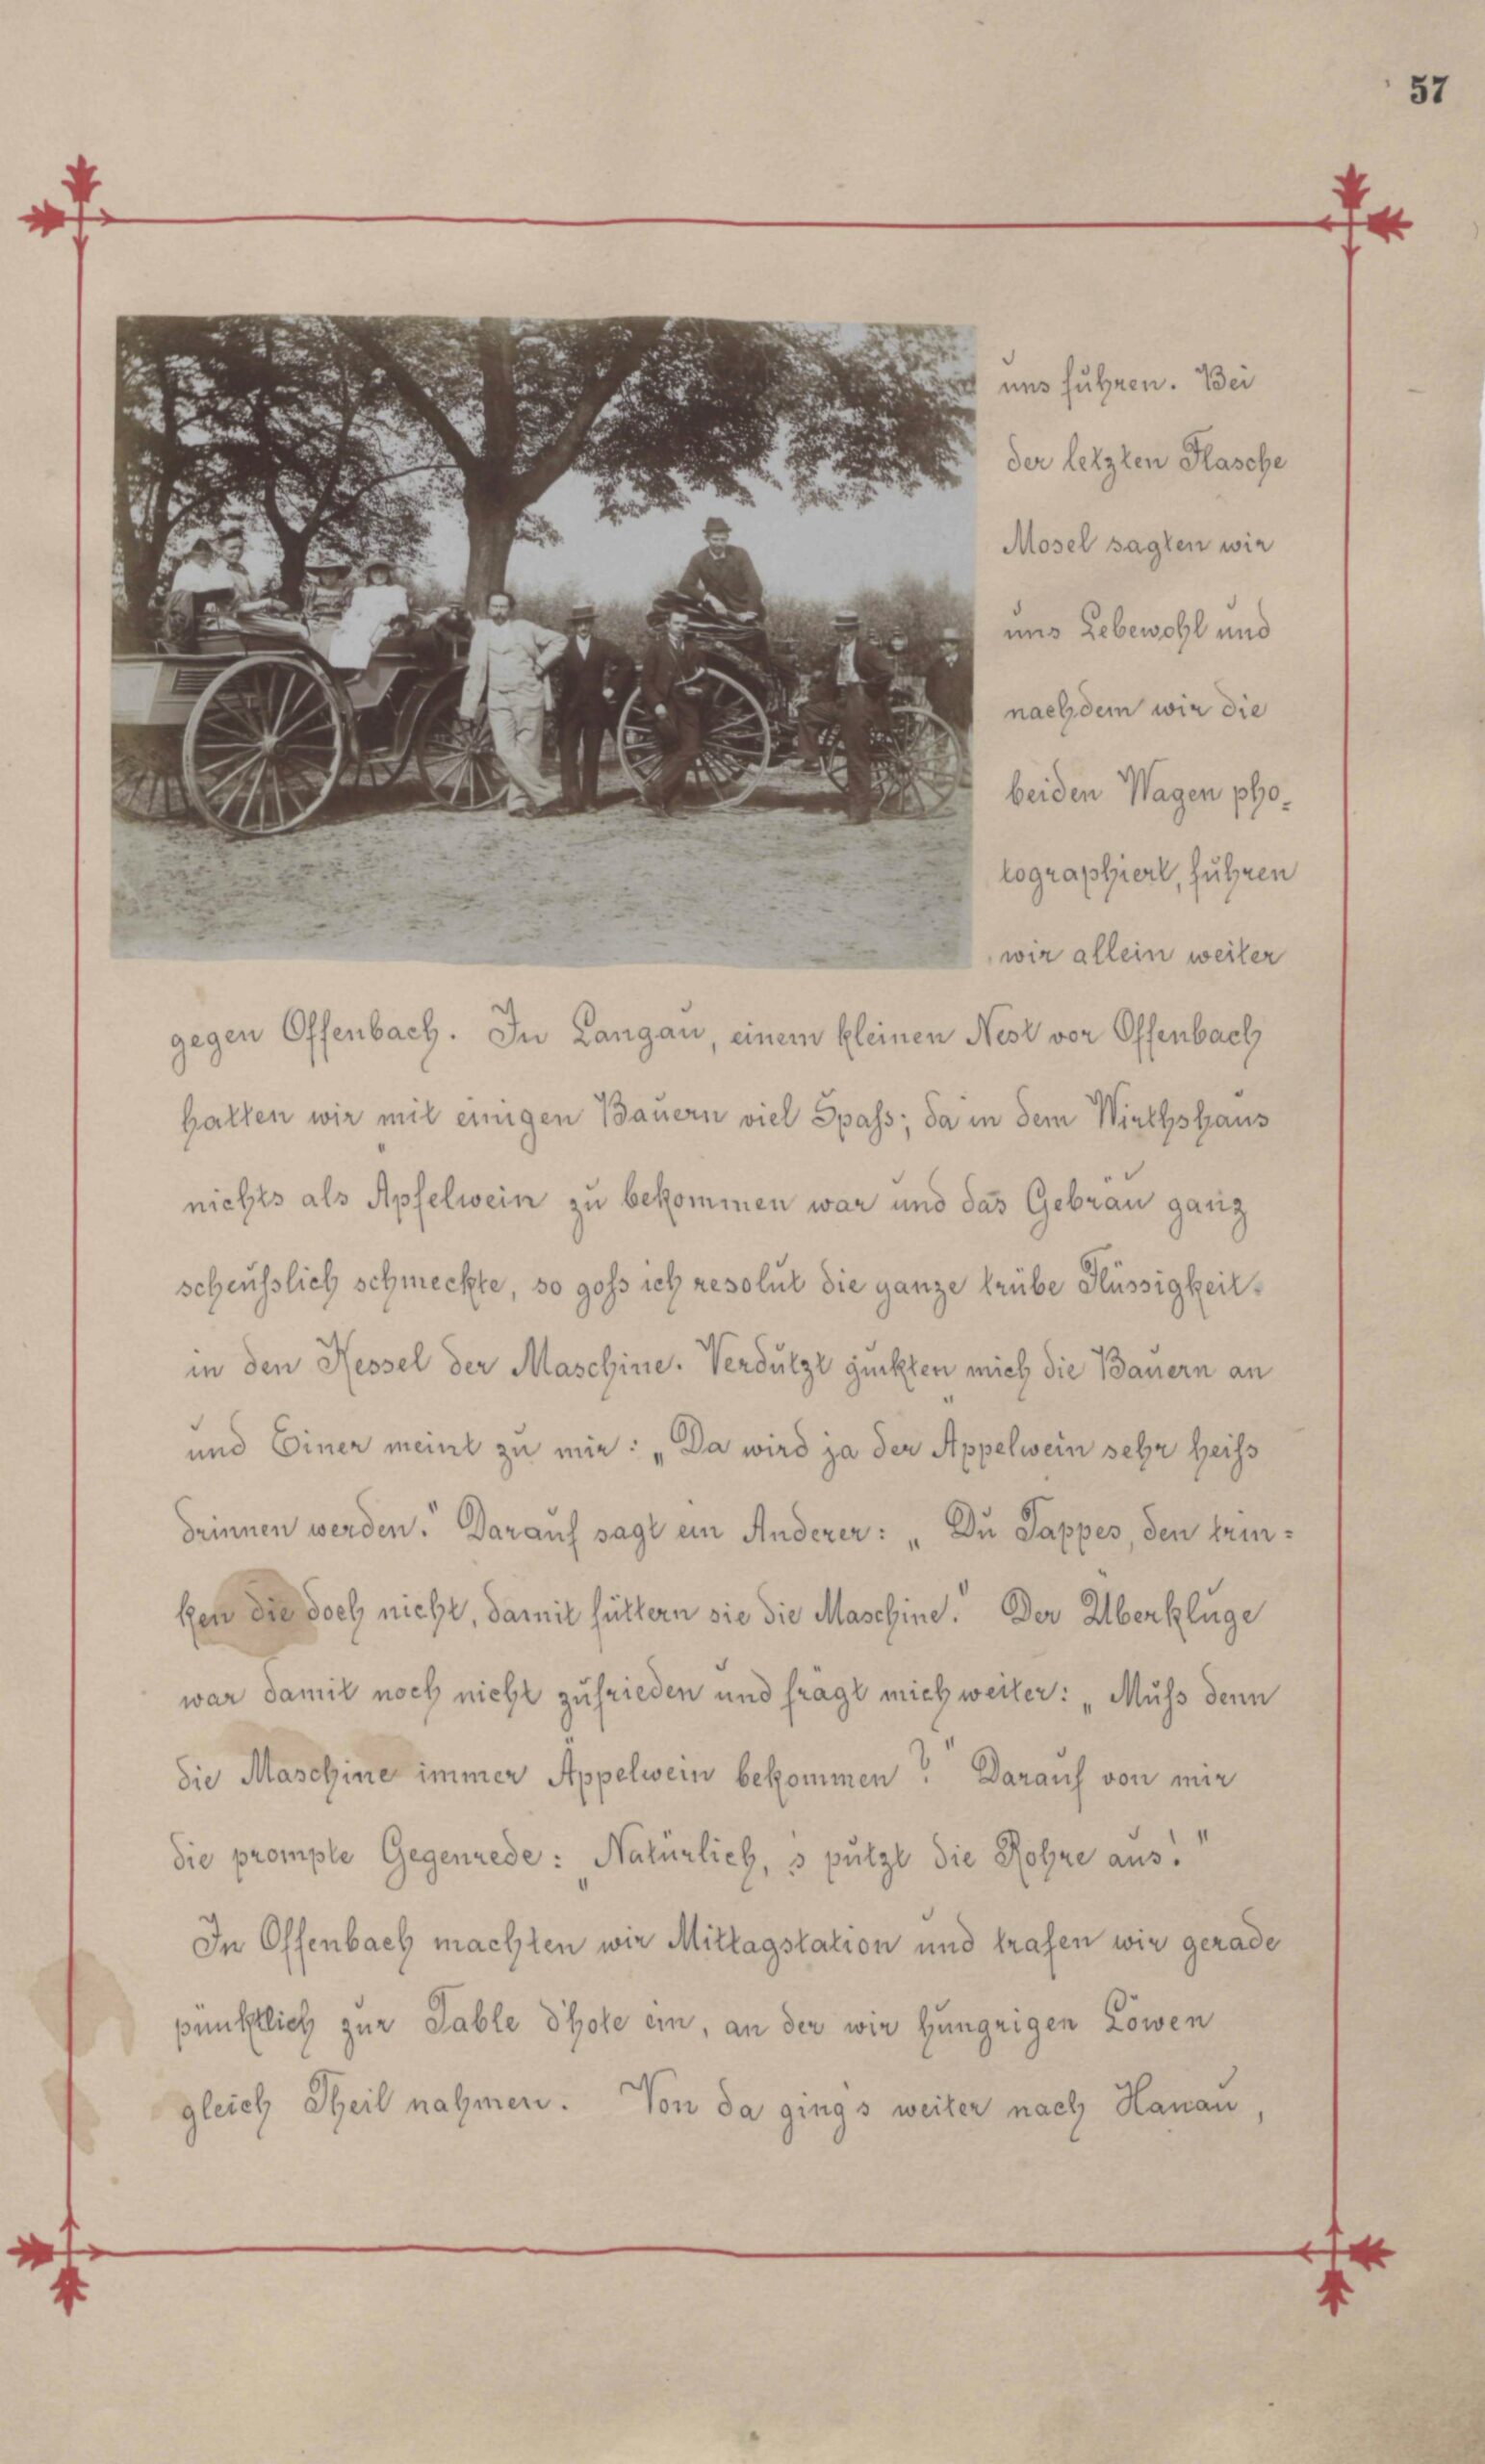 57
uns fuhren. Bei
der letzten Flasche
Mosel sagten wir
uns Lebewohl und
nachdem wir die
beiden Wagen pho=
tographiert, fuhren
wir allein weiter
gegen Offenbach. In Langau, einem kleinen Nest vor Offenbach
hatten wir mit einigen Bauern viel Spass; da in dem Wirthshaus
nichts als Äpfelwein zu bekommen war und das Gebräu ganz
scheusslich schmeckte, so goss ich resolut die ganze trübe Flüssigkeit
in den Kessel der Maschine. Verdutzt guckten mich die Bauern an
und Einer meint zu mir: „Da wird ja der Äppelwein sehr heiss
drinnen werden." Darauf sagt ein Anderer: „Du Tappes, den trin=
ken die doch nicht, damit füttern sie die Maschine." Der Überkluge
war damit noch nicht zufrieden und frägt mich weiter: „Muss denn
die Maschine immer Äppelwein bekommen?" Darauf von mir
die prompte Gegenrede: „Natürlich, 's putzt die Rohre aus!"
In Offenbach machten wir Mittagstation und trafen wir gerade
pünktlich zur Table d'hote ein, an der wir hungrigen Löwen
gleich Theil nahmen. Von da ging's weiter nach Hanau,